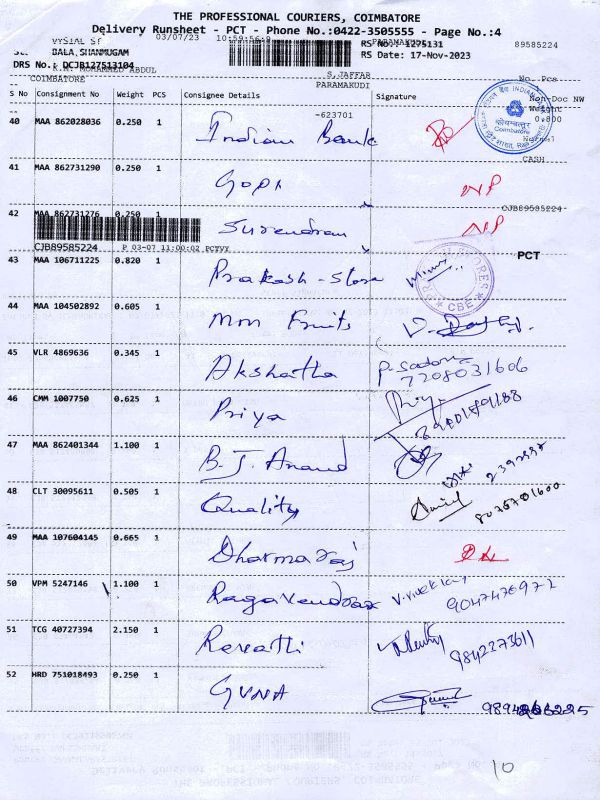 THE PROFESSIONAL COURIERS, COIMBATORE
Delivery Runsheet - PCT - Phone No.:0422-3505555 - Page No.:4
03/07/23 10:59:56 RS No.: 1275131 89585224
BALA, SHANMUGAM RS Date: 17-Nov-2023
DRS No.: DCJB127513104
MOHAMMED ABDUL
COIMBATORE S.JAFFAR No. Pcs
PARAMAKUDI
S No Consignment No Weight PCS Consignee Details Signature Non-Doc NW
Weight
-623701 0.800
40 MAA 862028036 0.250 1 Indian Bank
Coimbatore
Normal
CASH
41 MAA 862731290 0.250 1 Gopi NP
CJB89585224
42 MAA 862731276 0.250 1 Surendran NP
CJB89585224 P 03-07 11:00:02 PCTVY PCT
43 MAA 106711225 0.820 1 Prakash - Store
CBE
44 MAA 104502892 0.605 1 Mm Fruits
45 VLR 4869636 0.345 1 Akshatha
7208031606
46 CMM 1007750 0.625 1 Priya Priya
47 MAA 862401344 1.100 1 B. J. Anand
48 CLT 30095611 0.505 1 Quality
8075701600
49 MAA 107604145 0.665 1 Dharmaraj
50 VPM 5247146 1.100 1 Ragavendrar
51 TCG 40727394 2.150 1 Revathi
9842273611
52 HRD 751018493 0.250 1 GUNA
10